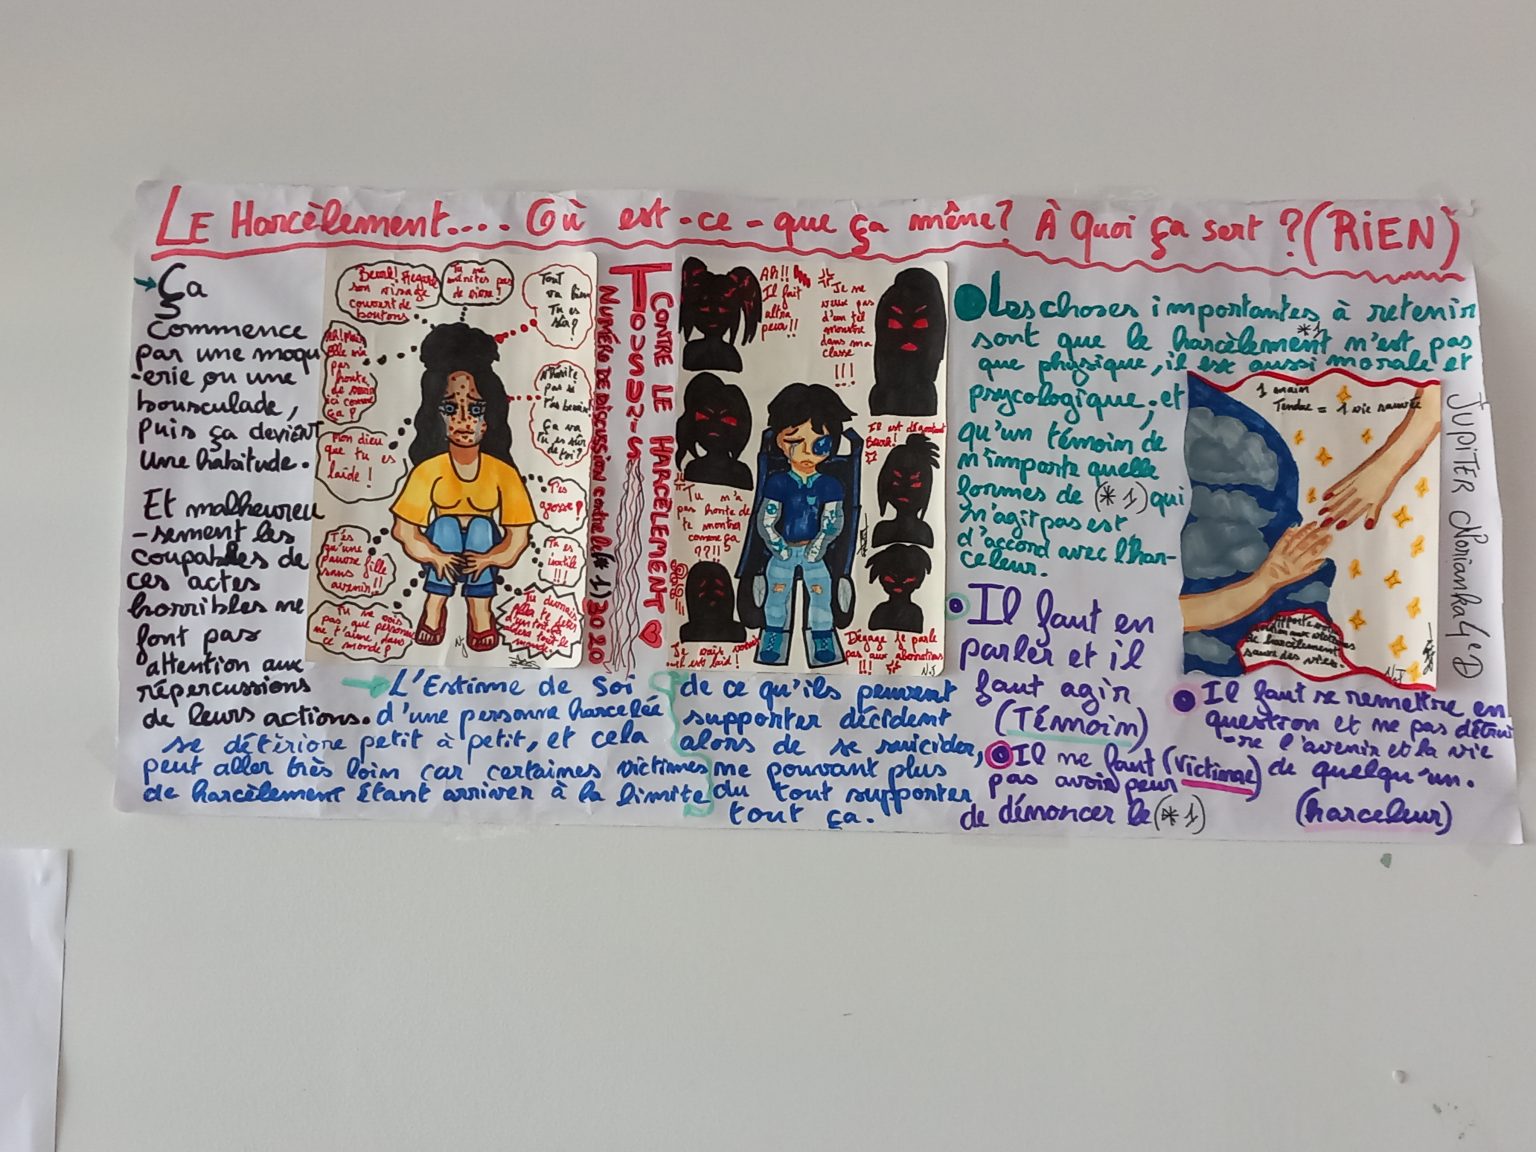 LE Harcèlement.... Où est-ce-que ça mène? À Quoi ça sert ? (RiEN)
Ça
Commence
par une moqu
-erie ou une
bousculade,
puis ça devient
une habitude.
Et malheureu
-sement les
coupables de
ces actes
horribles ne
font pas
attention aux
répercussions
de leurs actions.
Beurk! Regarde
son visage
couvert de
boutons
Tu ne
mérites pas
de vivre!
Tout
va bien
Tu es
sûr?
pas
honte
ça ?
N'hésite
pas si
t'as besoin
Ça va
Tu es sûr
de toi?
Mon dieu
que tu es
laide !
T'es
grosse!
T'es
qu'une
pauvre fille
sans
avenir!!
Tu es
inutile
!!!
Tu ne vois
pas que personne
ne t'aime dans
ce monde?
N.J
TOUSUR-IS
CONTRE LE HARCÈLEMENT
NUMÉRO DE DISCUSSION contre le (*1) 30 20
AH!!
Il fait
ultra
peur!!
Je ne
veux pas
d'un tel
monstre
dans ma
classe
!!!
Il est dégoutant
Beurk!
Tu n'a
pas honte de
te montrer
comme ça
??!!
Je vais vomir
il est laid !
Dégage je parle
pas aux abominations
!!!
N.J
→ L'Estime de Soi
d'une personne harcelée
se détériore petit à petit, et cela
peut aller très loin car certaines victimes
de harcèlement étant arriver à la limite
de ce qu'ils peuvent
supporter décident
alors de se suicider,
ne pouvant plus
du tout supporter
tout ça.
Les choses importantes à retenir
sont que le harcèlement *1 n'est pas
que physique, il est aussi morale et
psycologique, et
qu'un témoin de
n'importe quelle
formes de (*1) qui
n'agit pas est
d'accord avec l'har-
celeur.
1 main
Tendue = 1 vie sauvée
aux victimes
de harcèlement
sauve des vies.
N.J
JUPiTER Norianha 4°D
Il faut en
parler et il
faut agir
(TÉMOiN)
Il ne faut (victime)
pas avoir peur
de dénoncer le (*1)
Il faut se remettre en
question et ne pas détrui
-re l'avenir et la vie
de quelqu'un.
(harceleur)